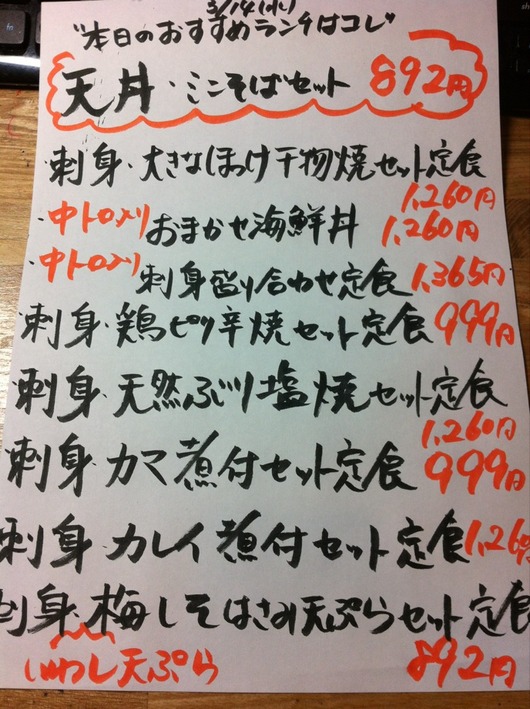 3/14(水)
"本日のおすすめランチはコレ"
天丼・ミニそばセット 892円
刺身・大きなほっけ干物焼セット定食
1,260円
・中トロ入り おまかせ海鮮丼 1,260円
・中トロ入り
刺身盛り合わせ定食 1,365円
刺身・鶏ピリ辛焼セット定食 999円
刺身・天然ぶり塩焼セット定食
1,260円
刺身・カマ煮付セット定食 999円
刺身・カレイ煮付セット定食 1,26
刺身・梅しそはさみ天ぷらセット定食
いわし天ぷら 892円